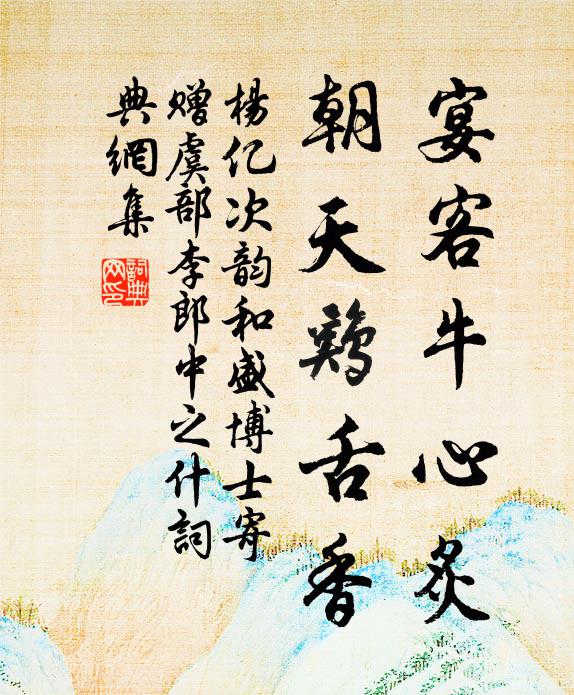 宴客牛心炙
朝天鷄舌香
楊亿次韵和盛博士寄
赠虞部李郎中之什詞
典網集
詞典網印